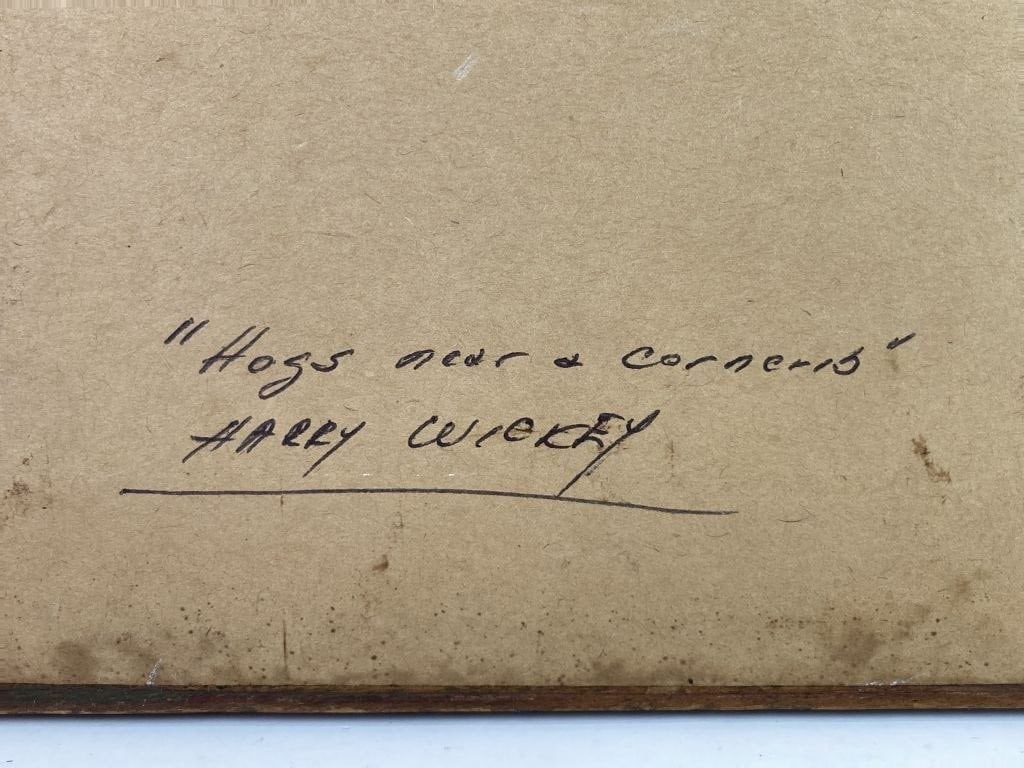 "Hogs near a corncrib"
HARRY WICKEY